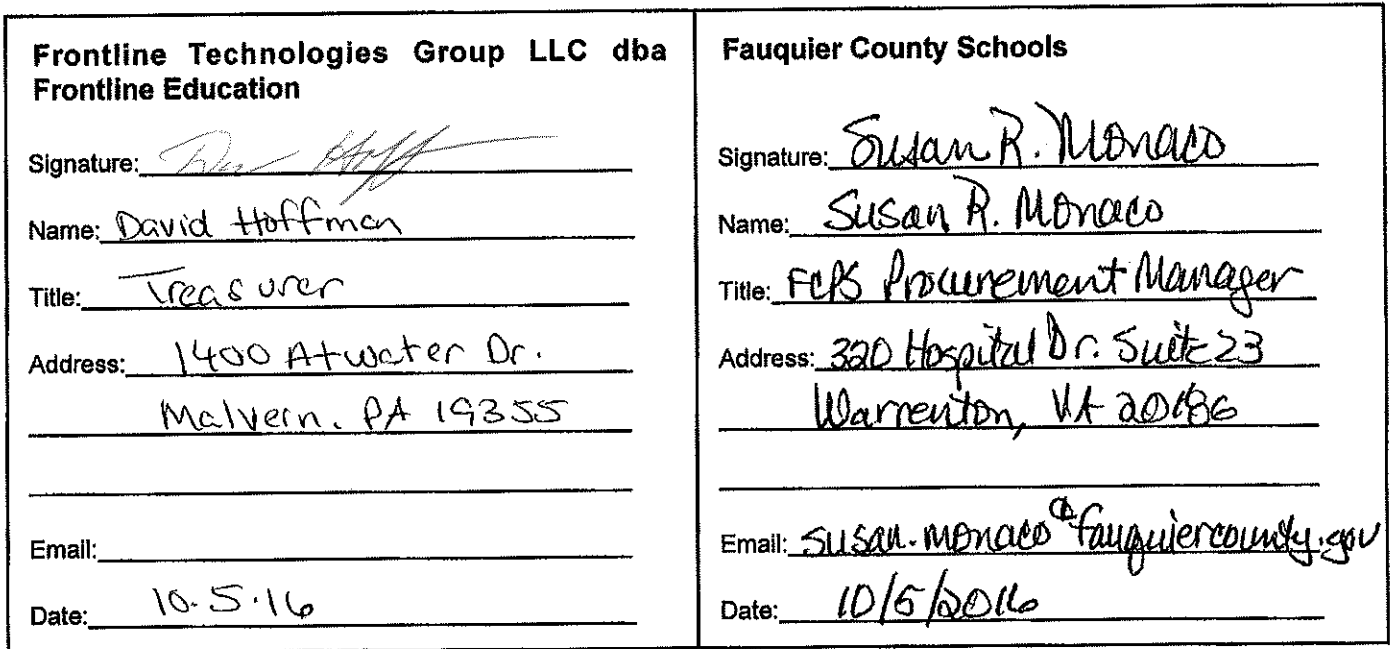 Frontline Technologies Group LLC dba
Frontline Education
Signature:
Name: David Hoffman
Title: Treasurer
Address: 1400 Atwater Dr.
Malvern, PA 19355
Email:
Date: 10.5.16
Fauquier County Schools
Signature: Susan R. Monaco
Name: Susan R. Monaco
Title: FCPS Procurement Manager
Address: 320 Hospital Dr. Suite 23
Warrenton, VA 20186
Email: susan.monaco@fauquiercounty.gov
Date: 10/5/2016